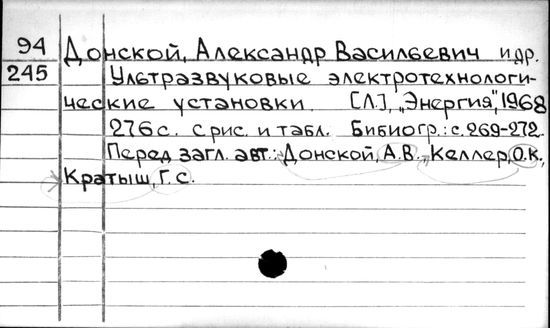 94 Донской, Александр Васильевич и др.
245 Ультразвуковые электротехнологи-
ческие установки. [Л.], „Энергия", 1968
276 с. с рис. и табл. Бибиогр.: с. 269-272.
Перед загл. авт.: Донской, А.В., Келлер, О.К.,
Кратыш, Г.С.